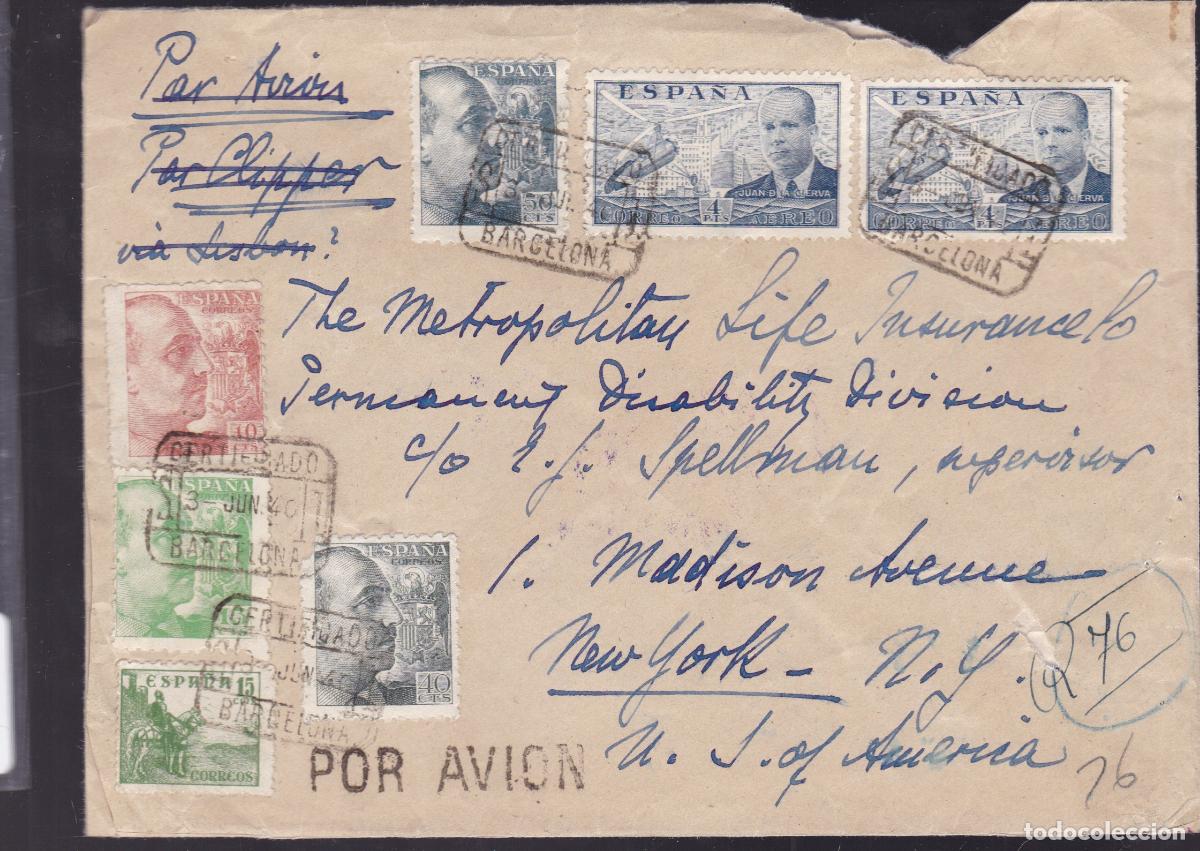 Par Avion
Par Clipper
via Lisbon?
ESPAÑA
50
CTS
ESPAÑA
JUAN DE LA CIERVA
4
PTS
CORREO AEREO
ESPAÑA
JUAN DE LA CIERVA
4
PTS
CORREO AEREO
CERTIFICADO
3 JUN
BARCELONA
CERTIFICADO
BARCELONA
The Metropolitan Life Insurance Co
Permanent Disability Division
c/o E. J. Spellman, supervisor
1. Madison Avenue
New York - N.Y.
U. S. of America
R 76
76
ESPAÑA
CORREOS
CERTIFICADO
3- JUN. 40
BARCELONA
ESPAÑA
ESPAÑA
CORREOS
40
CTS
CERTIFICADO
JUN. 40
BARCELONA
ESPAÑA 15
CTS
CORREOS
POR AVION
todocoleccion.net